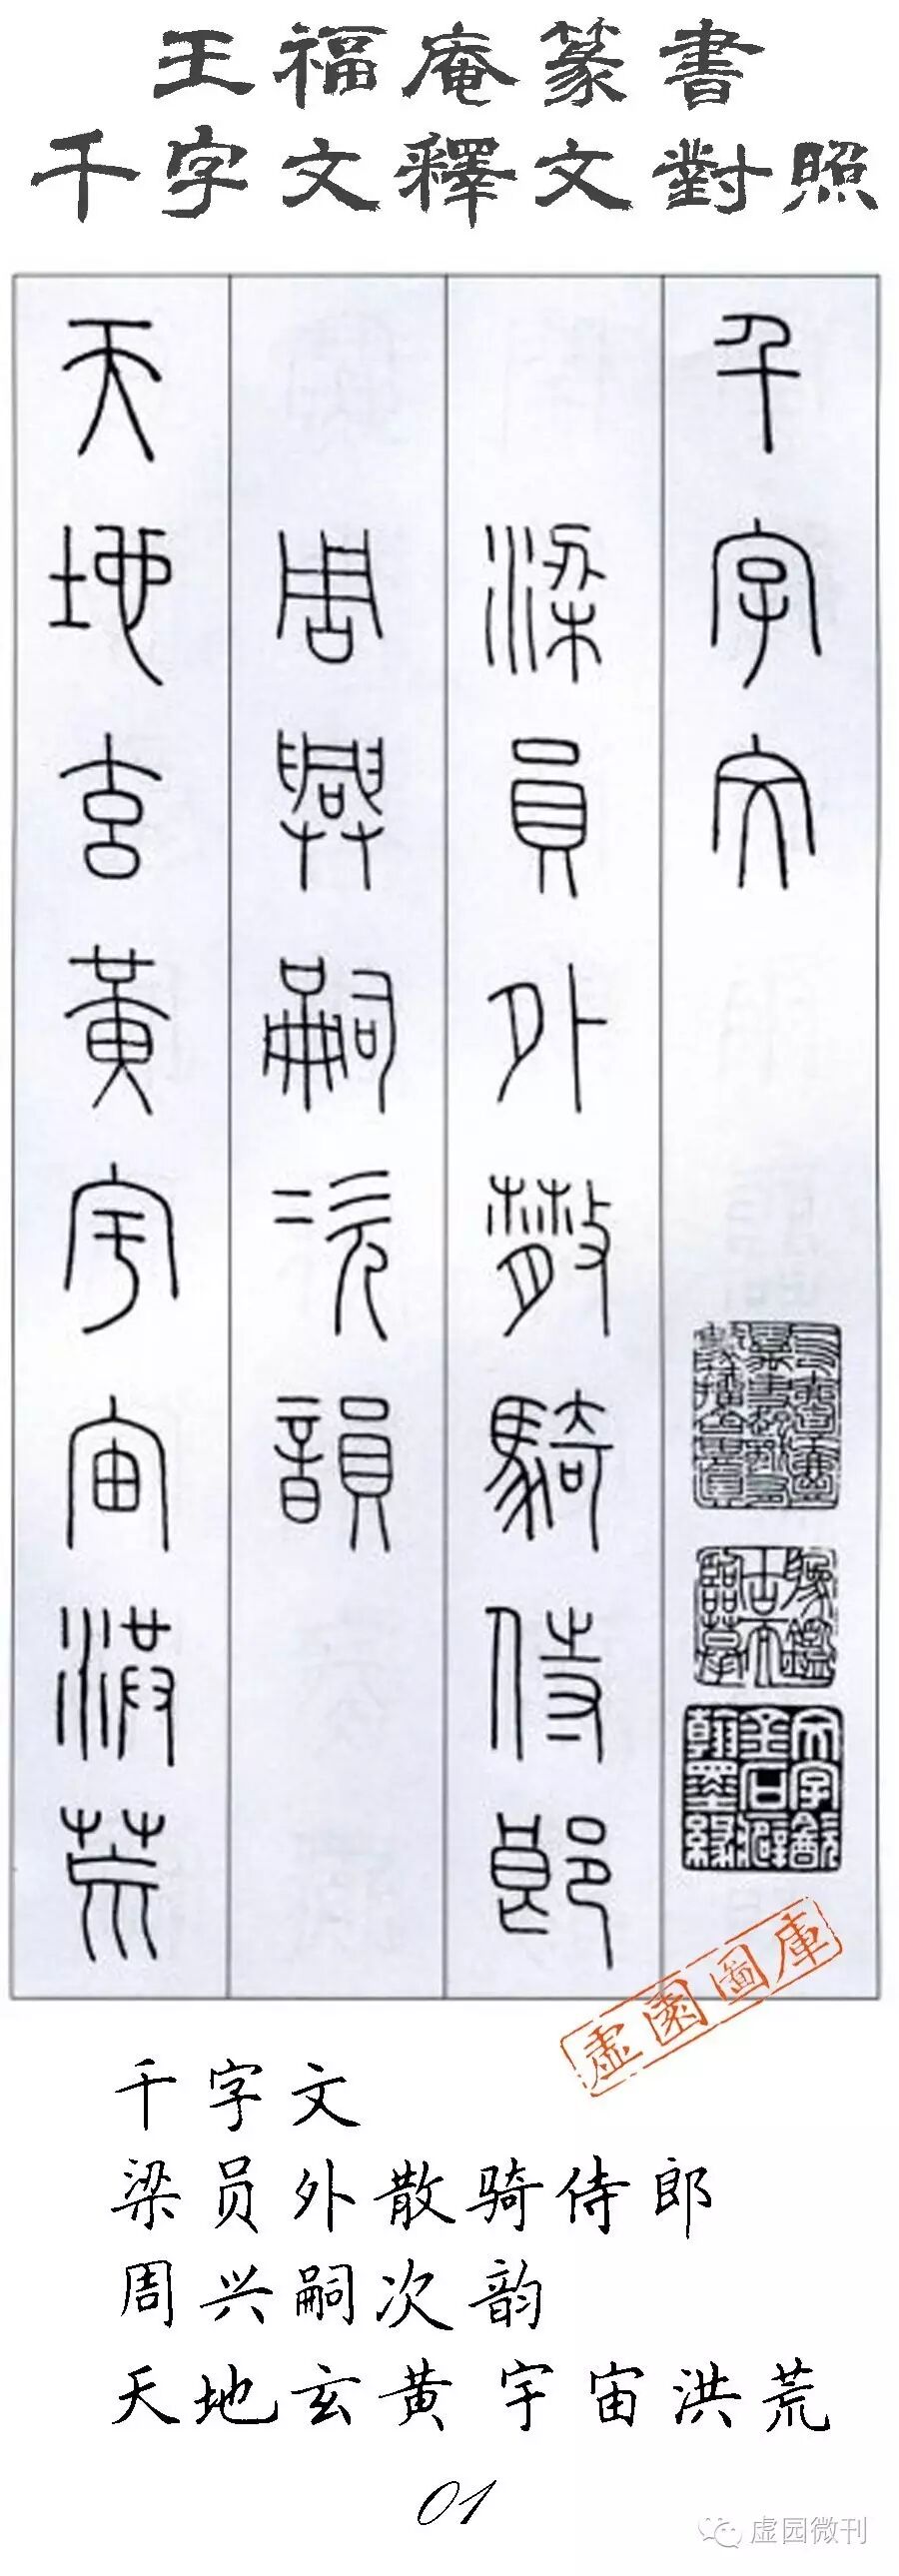 王福庵篆書
千字文釋文對照
千字文
梁員外散騎侍郎
周興嗣次韻
天地玄黃宇宙洪荒
虛園圖庫
千字文
梁员外散骑侍郎
周兴嗣次韵
天地玄黄宇宙洪荒
01
虚园微刊